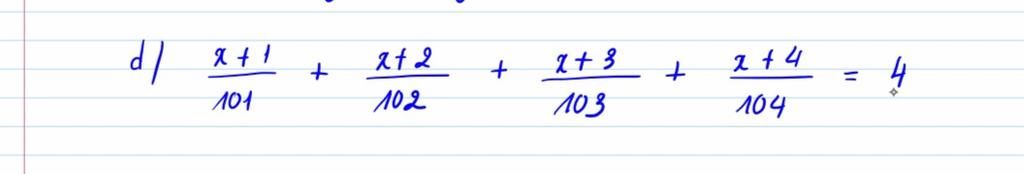 d/ (x+1)/101 + (x+2)/102 + (x+3)/103 + (x+4)/104 = 4